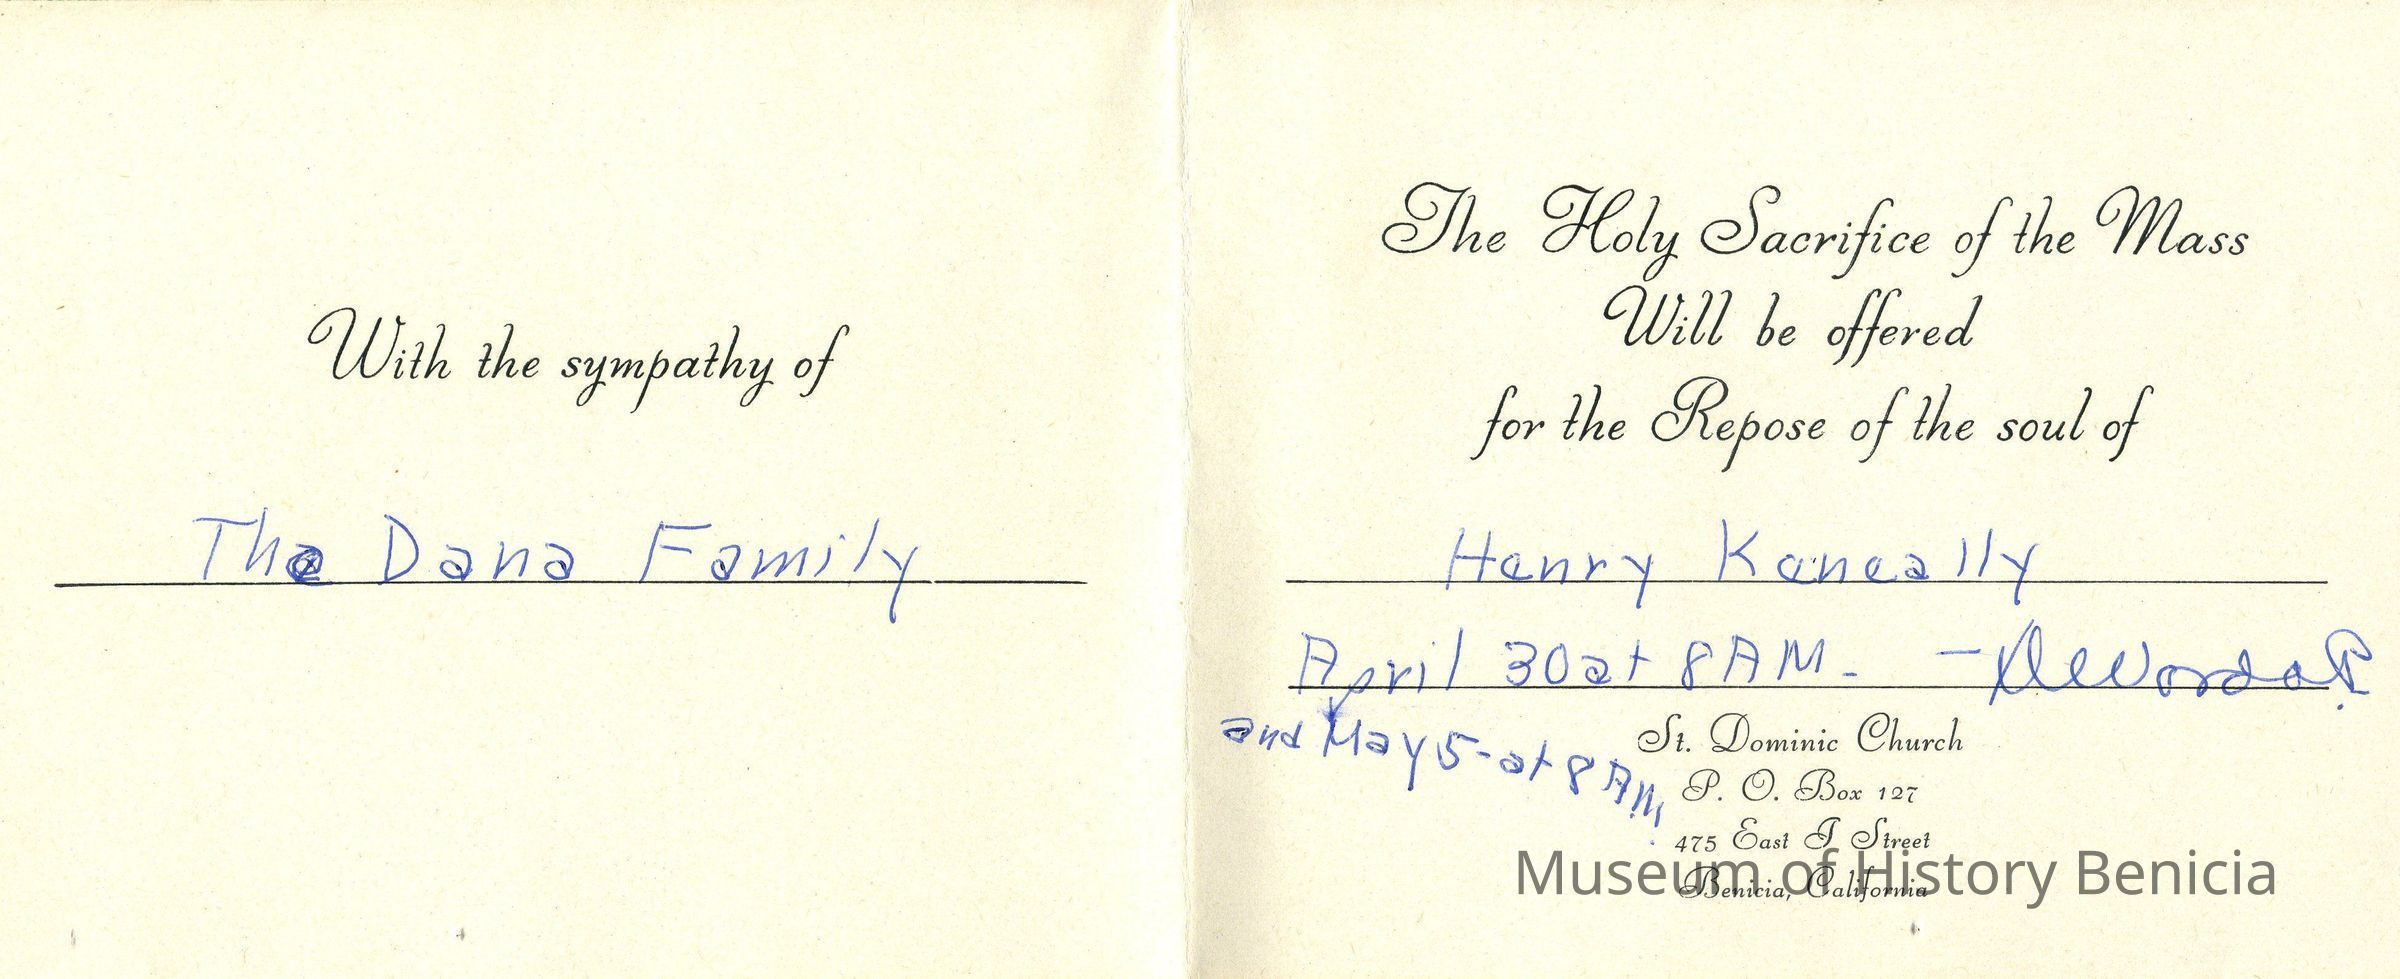 With the sympathy of
The Dana Family
The Holy Sacrifice of the Mass
Will be offered
for the Repose of the soul of
Henry Keneally
April 30 at 8 AM. -
and May 5 - at 8 AM.
St. Dominic Church
P. O. Box 127
475 East I Street
Benicia, California
Museum of History Benicia